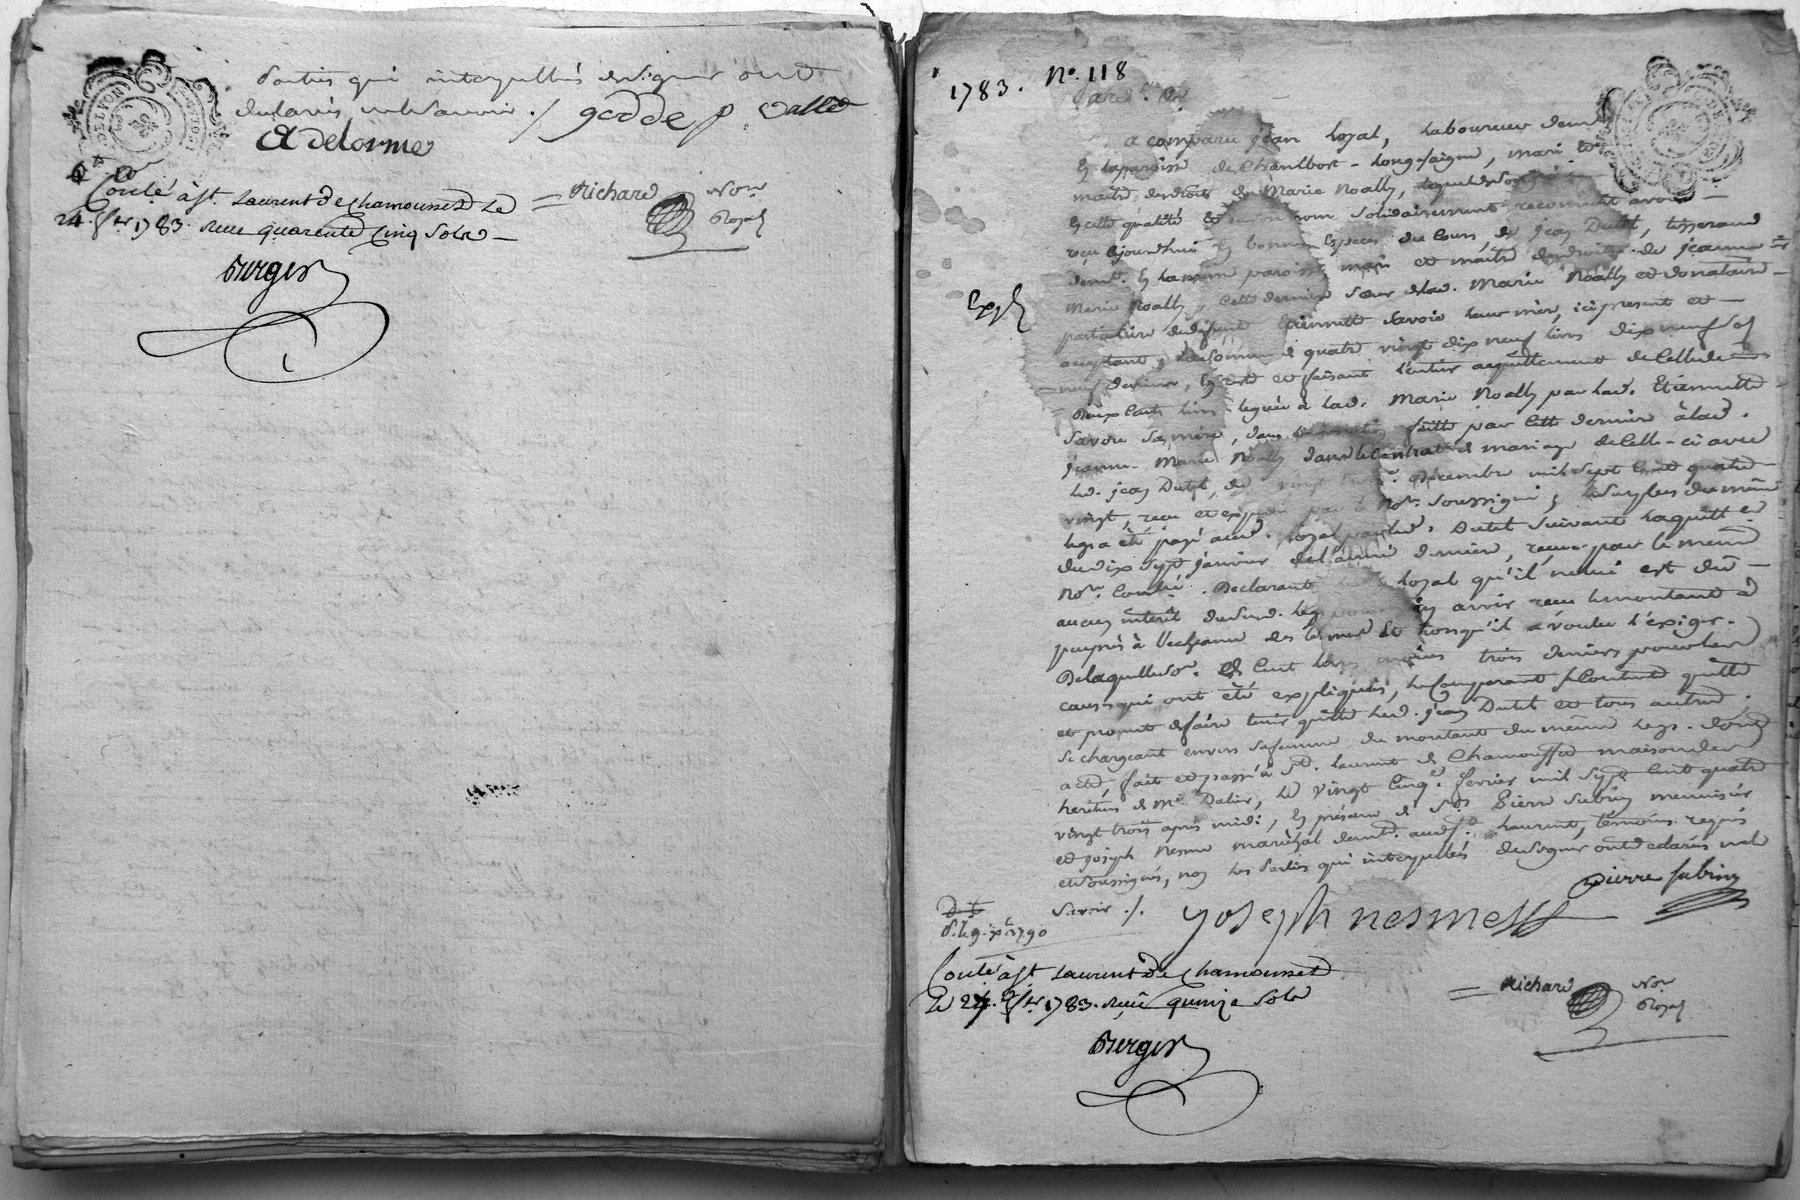 Parties qui interpellés de signer ont
déclarés ne le savoir ./. godde p vallet
A delorme
Conlé à St. Laurent De Chamousset Le
24. fer 1783. reçu quarente Cinq Sols
Richard Nore Royal
Burger
1783. No. 118
Par dt
a comparu jean loyal, Laboureur demt
En la paroisse de Chambost-Longesaigne, mari et
maître des droits de Marie Noally, lequel
En cette qualité et en son nom solidairement reconnoit avoir
reçu ajourd'hui En bonnes Especes du Cours, de jean Dutel, tisserand
demt. En la même paroisse mari et maître des droits de jeanne
Marie Noally, cette derniere sœur de lad. Marie Noally et donataire
particulière de défunte Etiennette Savoie leur mère, ici présent et
acceptant, la somme de quatre vingt dix neuf livres dix neuf sols
neuf deniers, En reste et faisant l'entier acquittement de Celle de
Deux Cents livres leguée à lad. Marie Noally par lad. Etiennette
Savoie sa mère, dans la donation faitte par Cette dernière à lad.
jeanne-Marie Noally dans le Contrat de mariage de Celle-ci avec
led. jean Dutel, du vingt trois Décembre mil sept Cent quatre
vingt, reçu et expédié par le Nore. Soussigné, le Surplus du même
legs a été payé aud. loyal par led. Dutel suivant la quittce
du dix sept janvier de l'année dernière, reçue par le même
Nore. Conlé. Déclarant led. loyal qu'il ne lui est dû
aucun intérêt dud. legs pour En avoir reçu le montant à
peuprès à l'echéance des termes Et lorsqu'il a voulu l'exiger.
De laquelle so. de Cent livres moins trois deniers pour les
causes qui ont été expliquées, le Comparant se Contente quitte
et promet de faire tenir quitte led. jean Dutel et tous autres.
Se chargeant envers sa femme du montant du même legs. dont
acte, fait et passé à St. Laurent de Chamousset maison des
heritiers de Mr. Dalier, le vingt Cinq. fevrier mil sept Cent quatre
vingt trois après midi, En présence de Srs Pierre Subrin menuisier
et joseph Nesme maréchal demt. aud. St. Laurent, témoins requis
et Soussignés, non les Parties qui interpellés de Signer ont déclarés ne le
Savoir ./.
Expé
pierre subrin
joseph nesme
d. le 9. xbre 1790
Conlé à St Laurent De Chamousset
Le 24. fer 1783. reçu quinze Sols
Richard Nore Royal
Burger